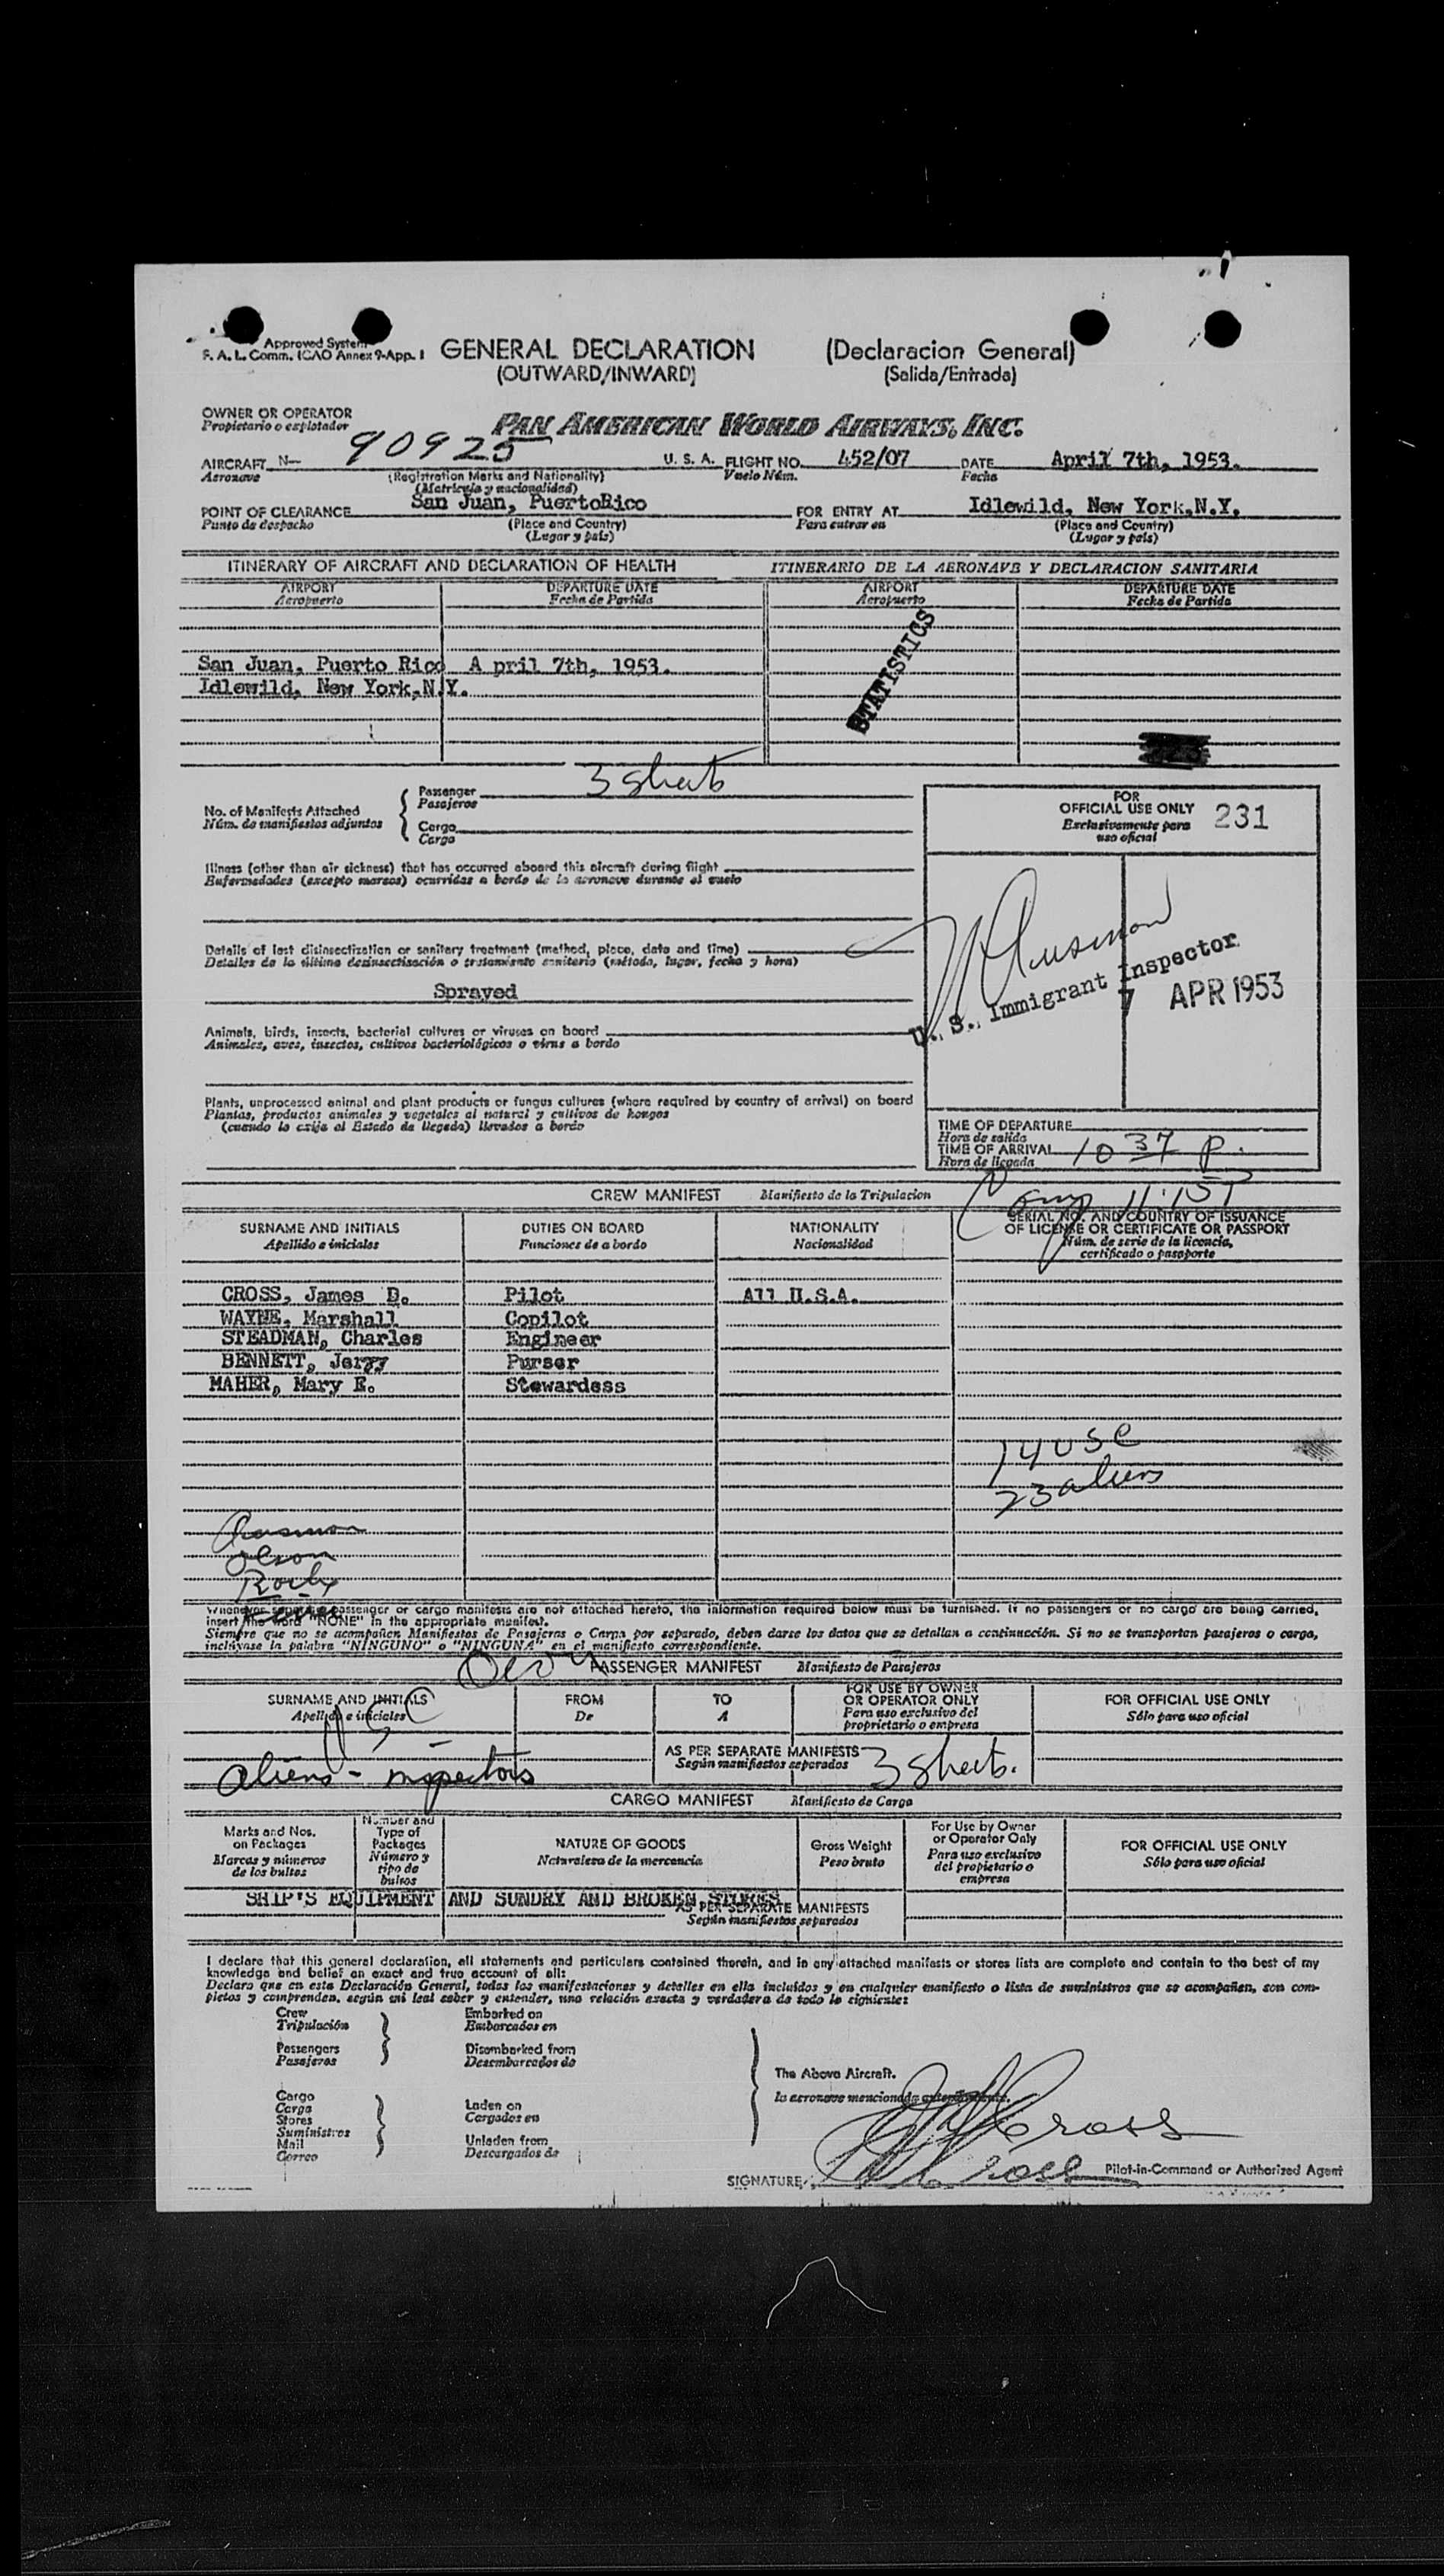 Approved System
F. A. L. Comm. ICAO Annex 9-App. 1
GENERAL DECLARATION (Declaracion General)
(OUTWARD/INWARD) (Salida/Entrada)
OWNER OR OPERATOR
Propietario o explotador
PAN AMERICAN WORLD AIRWAYS, INC.
AIRCRAFT N- 90925 U. S. A. FLIGHT NO. 452/07 DATE April 7th, 1953.
Aeronave (Registration Marks and Nationality) Vuelo Núm. Fecha
(Matricula y nacionalidad)
POINT OF CLEARANCE San Juan, PuertoRico FOR ENTRY AT Idlewild, New York,N.Y.
Punto de despacho (Place and Country) Para entrar en (Place and Country)
(Lugar y país) (Lugar y país)
ITINERARY OF AIRCRAFT AND DECLARATION OF HEALTH ITINERARIO DE LA AERONAVE Y DECLARACION SANITARIA
AIRPORT DEPARTURE DATE AIRPORT DEPARTURE DATE
Aeropuerto Fecha de Partida Aeropuerto Fecha de Partida
STATISTICS
San Juan, Puerto Rico A pril 7th, 1953.
Idlewild, New York,N.Y.
No. of Manifests Attached
Núm. de manifiestos adjuntos
Passenger 3 sheets
Pasajeros
Cargo
Carga
FOR
OFFICIAL USE ONLY 231
Exclusivamente para
uso oficial
Illness (other than air sickness) that has occurred aboard this aircraft during flight
Enfermedades (excepto mareos) ocurridas a bordo de la aeronave durante el vuelo
Details of last disinsectization or sanitary treatment (method, place, date and time)
Detalles de la última desinsectisación o tratamiento sanitario (método, lugar, fecha y hora)
Sprayed
U. S. Immigrant Inspector
7 APR 1953
Animals, birds, insects, bacterial cultures or viruses on board
Animales, aves, insectos, cultivos bacteriológicos o virus a bordo
Plants, unprocessed animal and plant products or fungus cultures (where required by country of arrival) on board
Plantas, productos animales y vegetales al natural y cultivos de hongos
(cuando lo exija el Estado de llegada) llevados a bordo
TIME OF DEPARTURE
Hora de salida
TIME OF ARRIVAL 10 37 P.
Hora de llegada
CREW MANIFEST Manifiesto de la Tripulacion
11:15P
SURNAME AND INITIALS DUTIES ON BOARD NATIONALITY SERIAL NO. AND COUNTRY OF ISSUANCE
Apellido e iniciales Funciones de a bordo Nacionalidad OF LICENSE OR CERTIFICATE OR PASSPORT
Núm. de serie de la licencia,
certificado o pasaporte
CROSS, James D. Pilot All U.S.A.
WAYNE, Marshall Copilot
STEADMAN, Charles Engineer
BENNETT, Jerry Purser
MAHER, Mary E. Stewardess
14 USC
23 aliens
Olson
Whenever separate passenger or cargo manifests are not attached hereto, the information required below must be furnished. If no passengers or no cargo are being carried,
insert the word "NONE" in the appropriate manifest.
Siempre que no se acompañen Manifiestos de Pasajeros o Carga por separado, deben darse los datos que se detallan a continuacción. Si no se transportan pasajeros o carga,
inclúyase la palabra "NINGUNO" o "NINGUNA" en el manifiesto correspondiente.
PASSENGER MANIFEST Manifiesto de Pasajeros
SURNAME AND INITIALS FROM TO FOR USE BY OWNER FOR OFFICIAL USE ONLY
Apellido e iniciales De A OR OPERATOR ONLY Sólo para uso oficial
Para uso exclusivo del
proprietario o empresa
USC
AS PER SEPARATE MANIFESTS 3 sheets.
Según manifiestos separados
aliens - inspectors
CARGO MANIFEST Manifiesto de Carga
Marks and Nos.
on Packages
Marcas y números
de los bultos
Number and
Type of
Packages
Número y
tipo de
bultos
NATURE OF GOODS
Naturaleza de la mercancía
Gross Weight
Peso bruto
For Use by Owner
or Operator Only
Para uso exclusivo
del propietario o
empresa
FOR OFFICIAL USE ONLY
Sólo para uso oficial
SHIP'S EQUIPMENT AND SUNDRY AND BROKEN STORES
AS PER SEPARATE MANIFESTS
Según manifiestos separados
I declare that this general declaration, all statements and particulars contained therein, and in any attached manifests or stores lists are complete and contain to the best of my
knowledge and belief an exact and true account of all:
Declaro que en esta Declaración General, todas las manifestaciones y detalles en ella incluídos y en cualquier manifiesto o lista de suministros que se acompañen, son com-
pletos y comprenden, según mi leal saber y entender, una relación exacta y verdadera de todo lo siguiente:
Crew Embarked on
Tripulación Embarcados en
Passengers Disembarked from
Pasajeros Desembarcados de
The Above Aircraft.
La aeronave mencionada anteriormente.
Cargo
Carga
Stores
Suministros
Mail
Correo
Laden on
Cargados en
Unladen from
Descargados de
SIGNATURE Pilot-in-Command or Authorized Agent